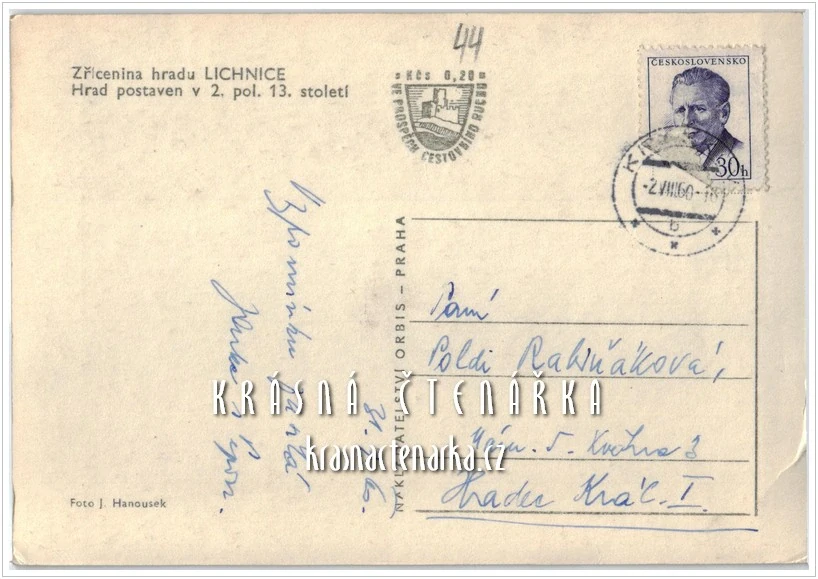 Zřícenina hradu LICHNICE
Hrad postaven v 2. pol. 13. století
44
Kčs 0,20
VE PROSPĚCH CESTOVNÍHO RUCHU
ČESKOSLOVENSKO
30h
-2.VIII.60-
b
Vzpomínku
NAKLADATELSTVÍ ORBIS – PRAHA
Paní
Poldi
Hradec Král. I.
KRÁSNÁ ČTENÁŘKA
krasnactenarka.cz
Foto J. Hanousek